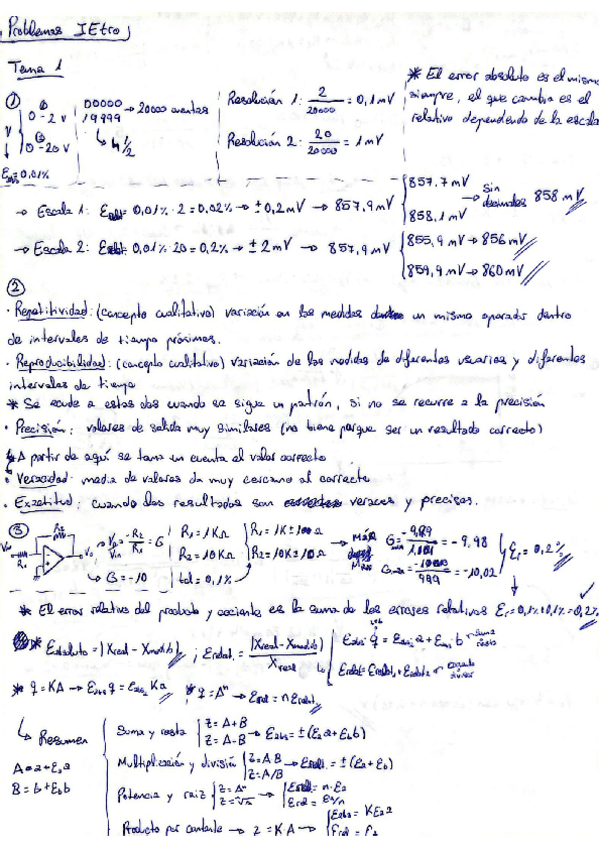 Problemas IEtro
Tema 1
* El error absoluto es el mismo
siempre, el que cambia es el
relativo dependendo de la escala
① V ① 0-2 V
② 0-20 V
00000
19999 → 20000 cuentas
↳ 4 1/2
Resolución 1: 2/20000 = 0,1 mV
Resolución 2: 20/20000 = 1 mV
= 0,01%
→ Escala 1: = 0,01% · 2 = 0,02% → ± 0,2 mV → 857,9 mV { 857,7 mV
858,1 mV → Sin decimales 858 mV
→ Escala 2: 0,01% · 20 = 0,2% → ± 2 mV → 857,9 mV { 855,9 mV → 856 mV
859,9 mV → 860 mV
②
· Repetitividad: (concepto cualitativo) variación en las medidas un mismo operador dentro
de intervalos de tiempo próximos.
· Reproducibilidad: (concepto cualitativo) variación de las medidas de diferentes usuarios y diferentes
intervalos de tiempo
* Se acude a estas dos cuando se sigue un patrón, si no se recurre a la precisión
· Precisión: valores de salida muy similares (no tiene porque ser un resultado correcto)
* A partir de aquí se toma en cuenta el valor correcto
· Veracidad: media de valores da muy cercano al correcto
· Exactitud: cuando los resultados son veraces y precisos.
③
Vin R1 R2 Vo → Vo/Vin = -R2/R1 = G
↳ G = -10
R1 = 1 KΩ
R2 = 10 KΩ
tol = 0,1%
R1 = 1K ±
R2 = 10K ± 10 Ω
= -9,98
= /999 = -10,02
Er = 0,2%
* El error relativo del producto y cociente es la suma de los errores relativos Er = 0,1% + 0,1% = 0,2%
* Eabsoluto = |Xreal - Xmedido| ; Erelat. = |Xreal - Xmedido| / Xreal
Eabs q = Eabs a + Eabs b → suma resta
Erelat = Erelat1 + Erelat2
* q = KA → Eabs q = Eabs Ka * q = Aⁿ → Erel = n Erelat
↳ Resumen
A = a + Ea a
B = b + Eb b
Suma y resta { Z = A + B
Z = A - B → Eabs = ± (Ea a + Eb b)
Multiplicación y división { Z = A·B
Z = A/B → Erel. = ± (Ea + Eb)
Potencia y raiz { Z = Aⁿ
Z = ⁿ√A → { Erel = n · Ea
Erel = Ea/n
Producto por constante → Z = K·A → { Eabs = K Ea a
Erel = Ea